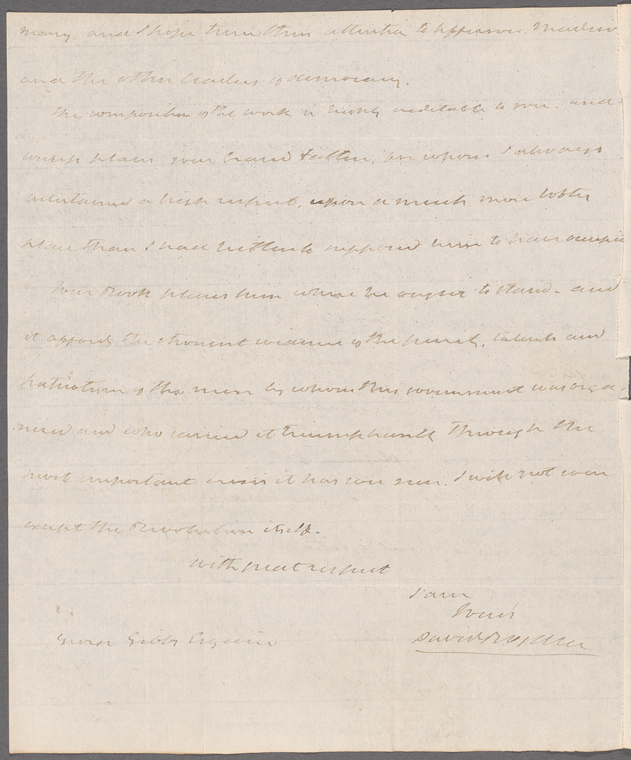 many and I hope turn their attention to Jefferson, Madison
and the other leaders of democracy.
The composition of the work is highly creditable to you. and
places your Grand Father, for whom I always
entertained a high respect, upon a much more lofty
place than I had hitherto supposed him to have occupied
Your Book places him where he ought to stand. and
it affords the strongest evidence of the purity, talents and
patriotism of the men by whom this government was orga-
nized and who carried it triumphantly through the
most important crisis it has ever seen. I will not even
except the Revolution itself.
With great respect
I am
Yours
David
George Gibbs Esquire